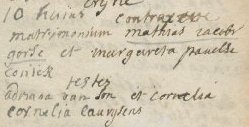 10 huius contraxere
matrimonium mathias Jacobi
gorse et margareta pauelse
conick
testes
adriana van son et cornelia
cornelia laurijsens